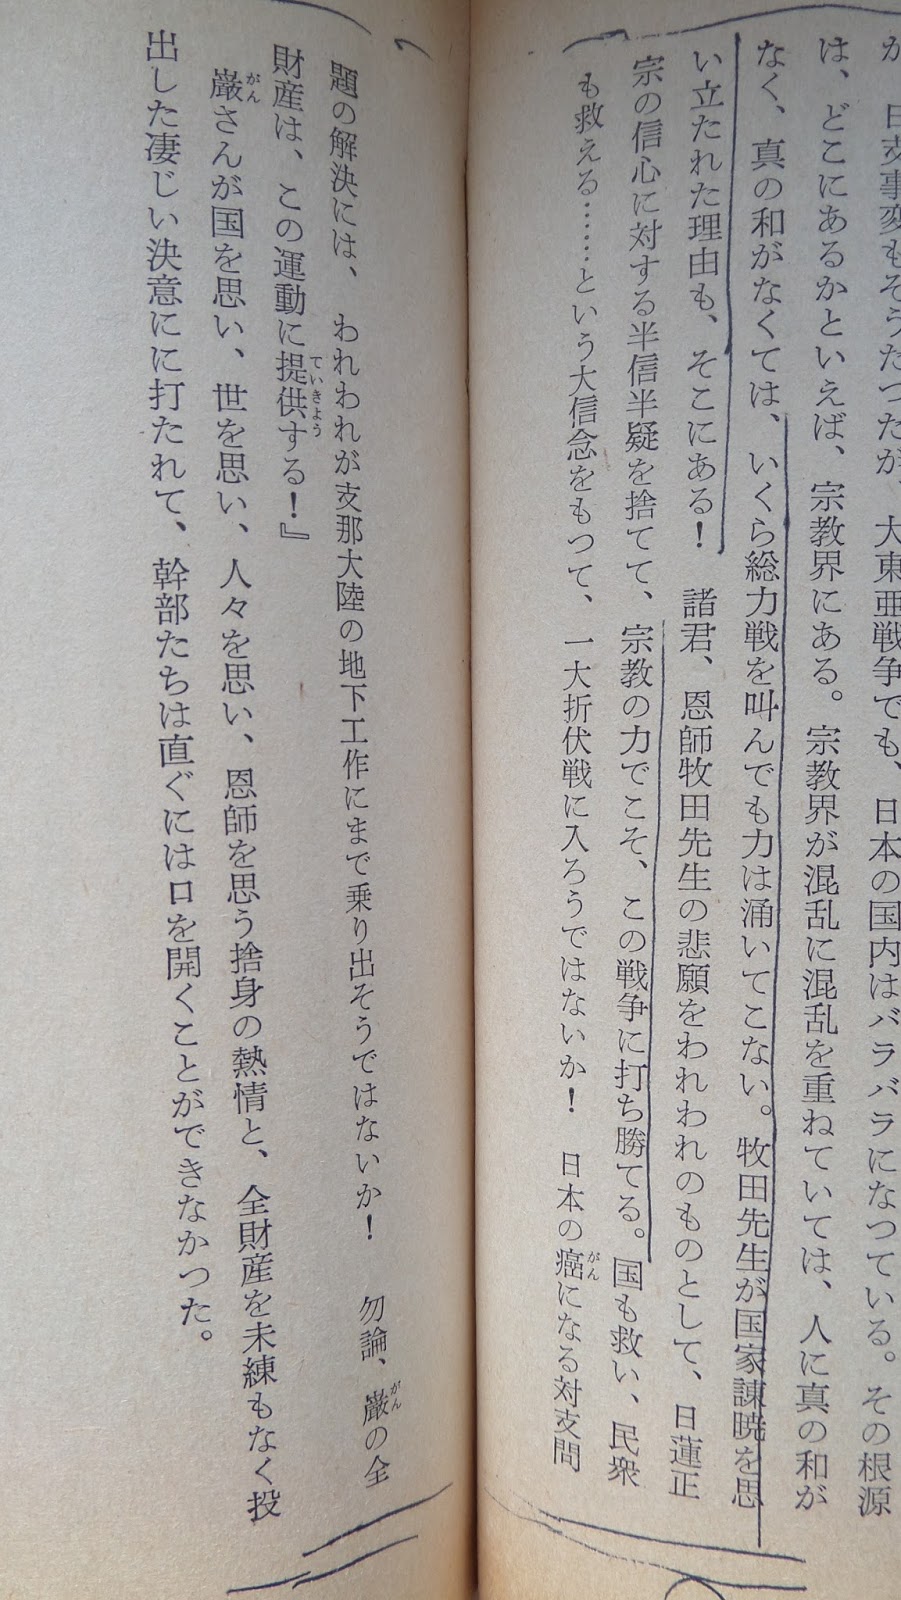 か、日支事変もそうだつたが、大東亜戦争でも、日本の国内はバラバラになつている。その根源
は、どこにあるかといえば、宗教界にある。宗教界が混乱に混乱を重ねていては、人に真の和が
なく、真の和がなくては、いくら総力戦を叫んでも力は涌いてこない。牧田先生が国家諫暁を思
い立たれた理由も、そこにある！　諸君、恩師牧田先生の悲願をわれわれのものとして、日蓮正
宗の信心に対する半信半疑を捨てて、宗教の力でこそ、この戦争に打ち勝てる。国も救い、民衆
も救える……という大信念をもつて、一大折伏戦に入ろうではないか！　日本の癌になる対支問
がん
題の解決には、われわれが支那大陸の地下工作にまで乗り出そうではないか！　勿論、巌の全
がん
財産は、この運動に提供する！』
ていきよう
巌さんが国を思い、世を思い、人々を思い、恩師を思う捨身の熱情と、全財産を未練もなく投
がん
出した凄じい決意にに打たれて、幹部たちは直ぐには口を開くことができなかつた。